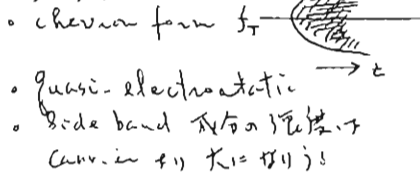 ・chevron form f_T
t
・quasi-electrostatic
・Side band 成分の強度は
carrier より大になりうる